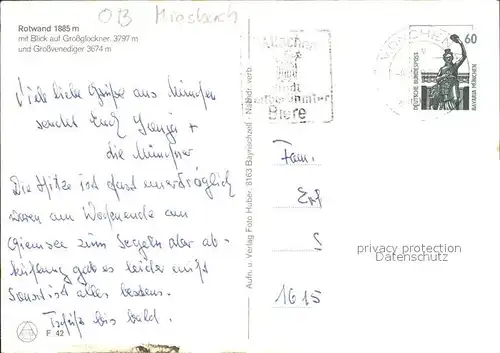 OB Miesbach
Rotwand 1885 m
mit Blick auf Großglockner, 3797 m
und Großvenediger 3674 m
Viele liebe Grüße aus München
sendet Euch
die Münchner
Die Hitze ist fast unerträglich
waren am Wochenende am
Chiemsee zum Segeln aber ab-
kühlung gab es leider nicht
Sonst ist alles bestens.
Tschüß bis bald.
F. 42
Aufn. u. Verlag Foto Huber, 8163 Bayrischzell · Nachdr. verb.
München
Biere
MÜNCHEN
60
DEUTSCHE BUNDESPOST
BAVARIA MÜNCHEN
Fam.
1615
privacy protection
Datenschutz